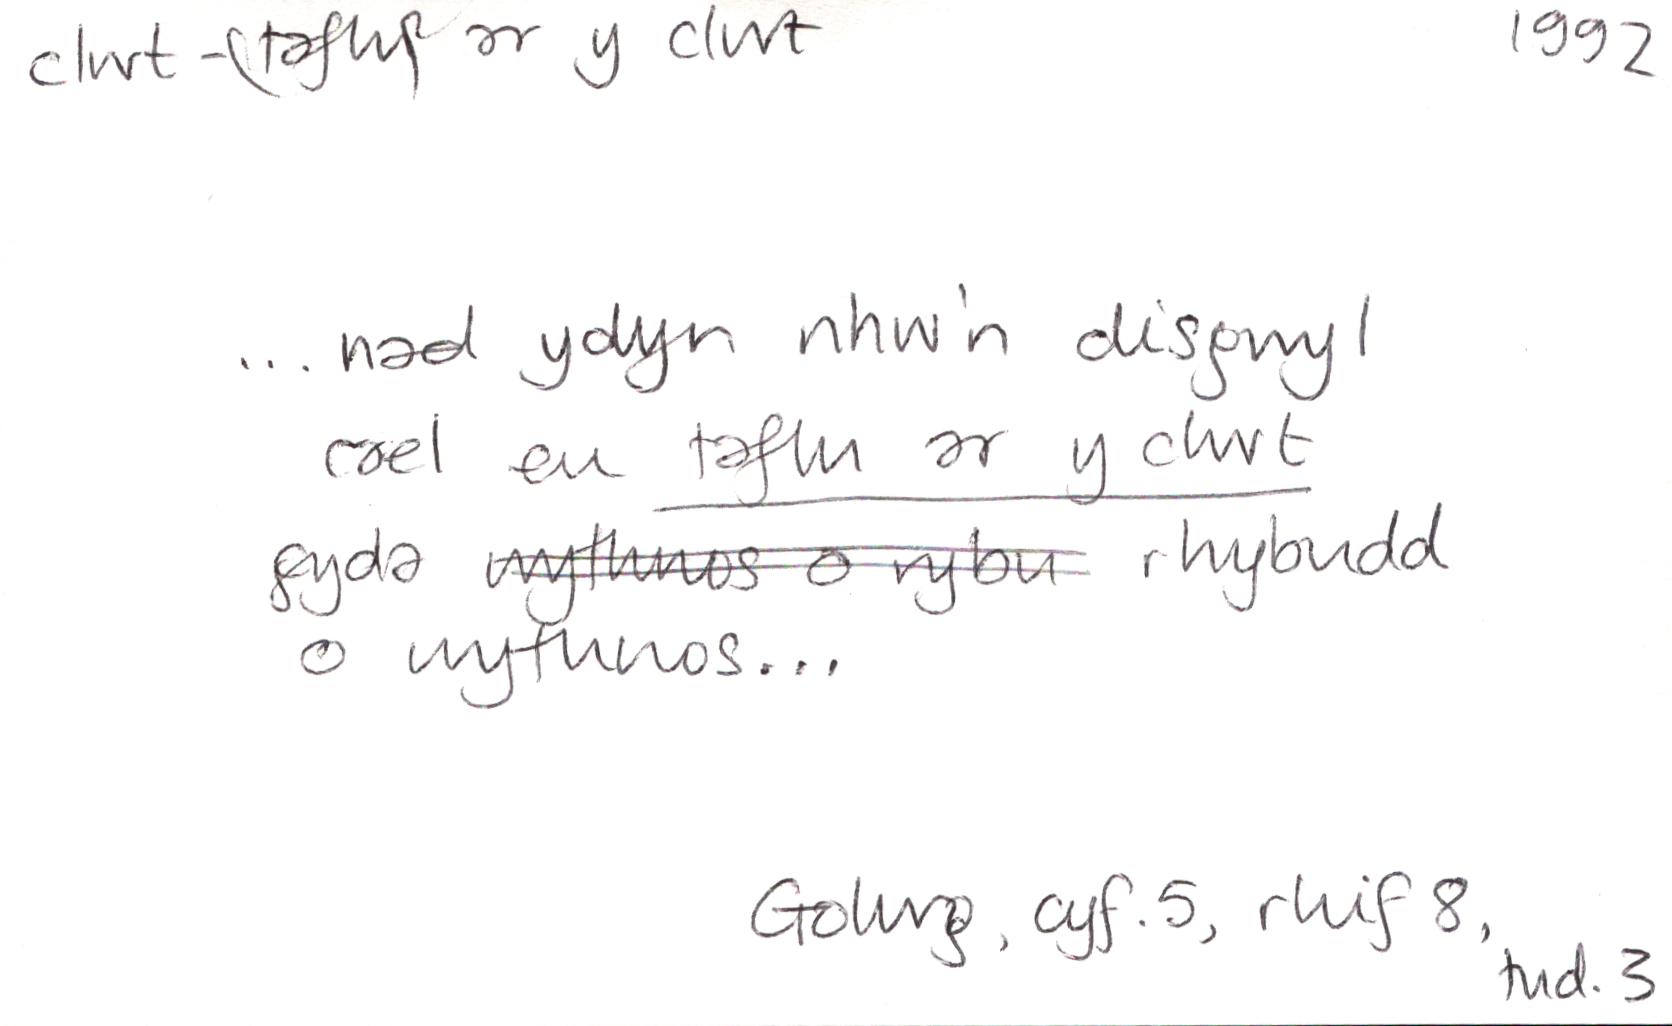 clwt - (taflu) ar y clwt 1992
... nad ydyn nhw'n disgwyl
cael eu taflu ar y clwt
gyda wythnos o rybu rhybudd
o wythnos...
Golwg, cyf. 5, rhif 8,
tud. 3